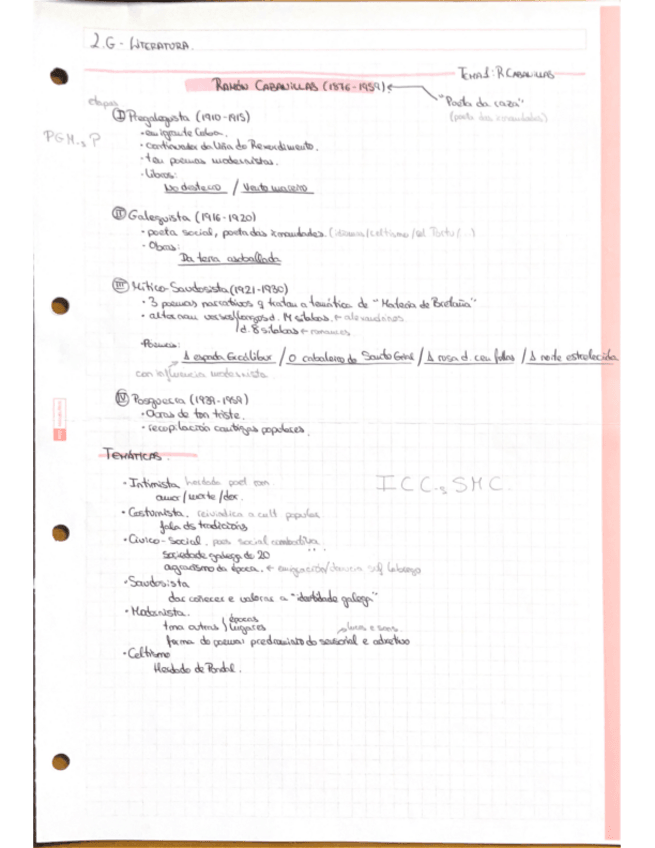 2.G - LITERATURA.
TEMA 1: R. CABANILLAS
RAMÓN CABANILLAS (1876-1959)
"Poeta da raza"
(poeta das irmandades)
etapas
I Pregaleguista (1910-1915)
PGM → P
· emigrante Cuba.
· continuador da liña do Rexurdimento.
· ten poemas modernistas.
· Libros:
No desterro / Vento mareiro
II Galeguista (1916-1920)
· poeta social, poeta das irmandades. (celtismo
· Obras:
Da terra asoballada
III Mítico-Saudosista (1921-1930)
· 3 poemas narrativos q tratan a temática de "Materia de Bretaña"
· alternan versos largos d. 14 sílabas ← alexandrinos
/ d. 8 sílabas ← romances
· Poemas:
A espada Escalibur / O cabaleiro do Santo Grial / A rosa d. cen follas / A noite estrelecida
con influencia modernista
IV Posguerra (1939-1959)
· Obras de ton triste.
· recopilación cantigas populares.
TEMÁTICAS.
· Intimista herdada poet rom
amor/morte/dor.
ICC → SMC.
· Costumista. reivindica a cult popular
fala ds tradicións
· Cívico-Social. poes social combativa
sociedade galega do 20
agrarismo da época. ← emigración/
· Saudosista
dar coñecer e valorar a "identidade galega"
· Modernista.
épocas
trata outras / lugares
luces e sons.
forma do poema: predominio do sensorial e adxectivo
· Celtismo
Herdado de Pondal.